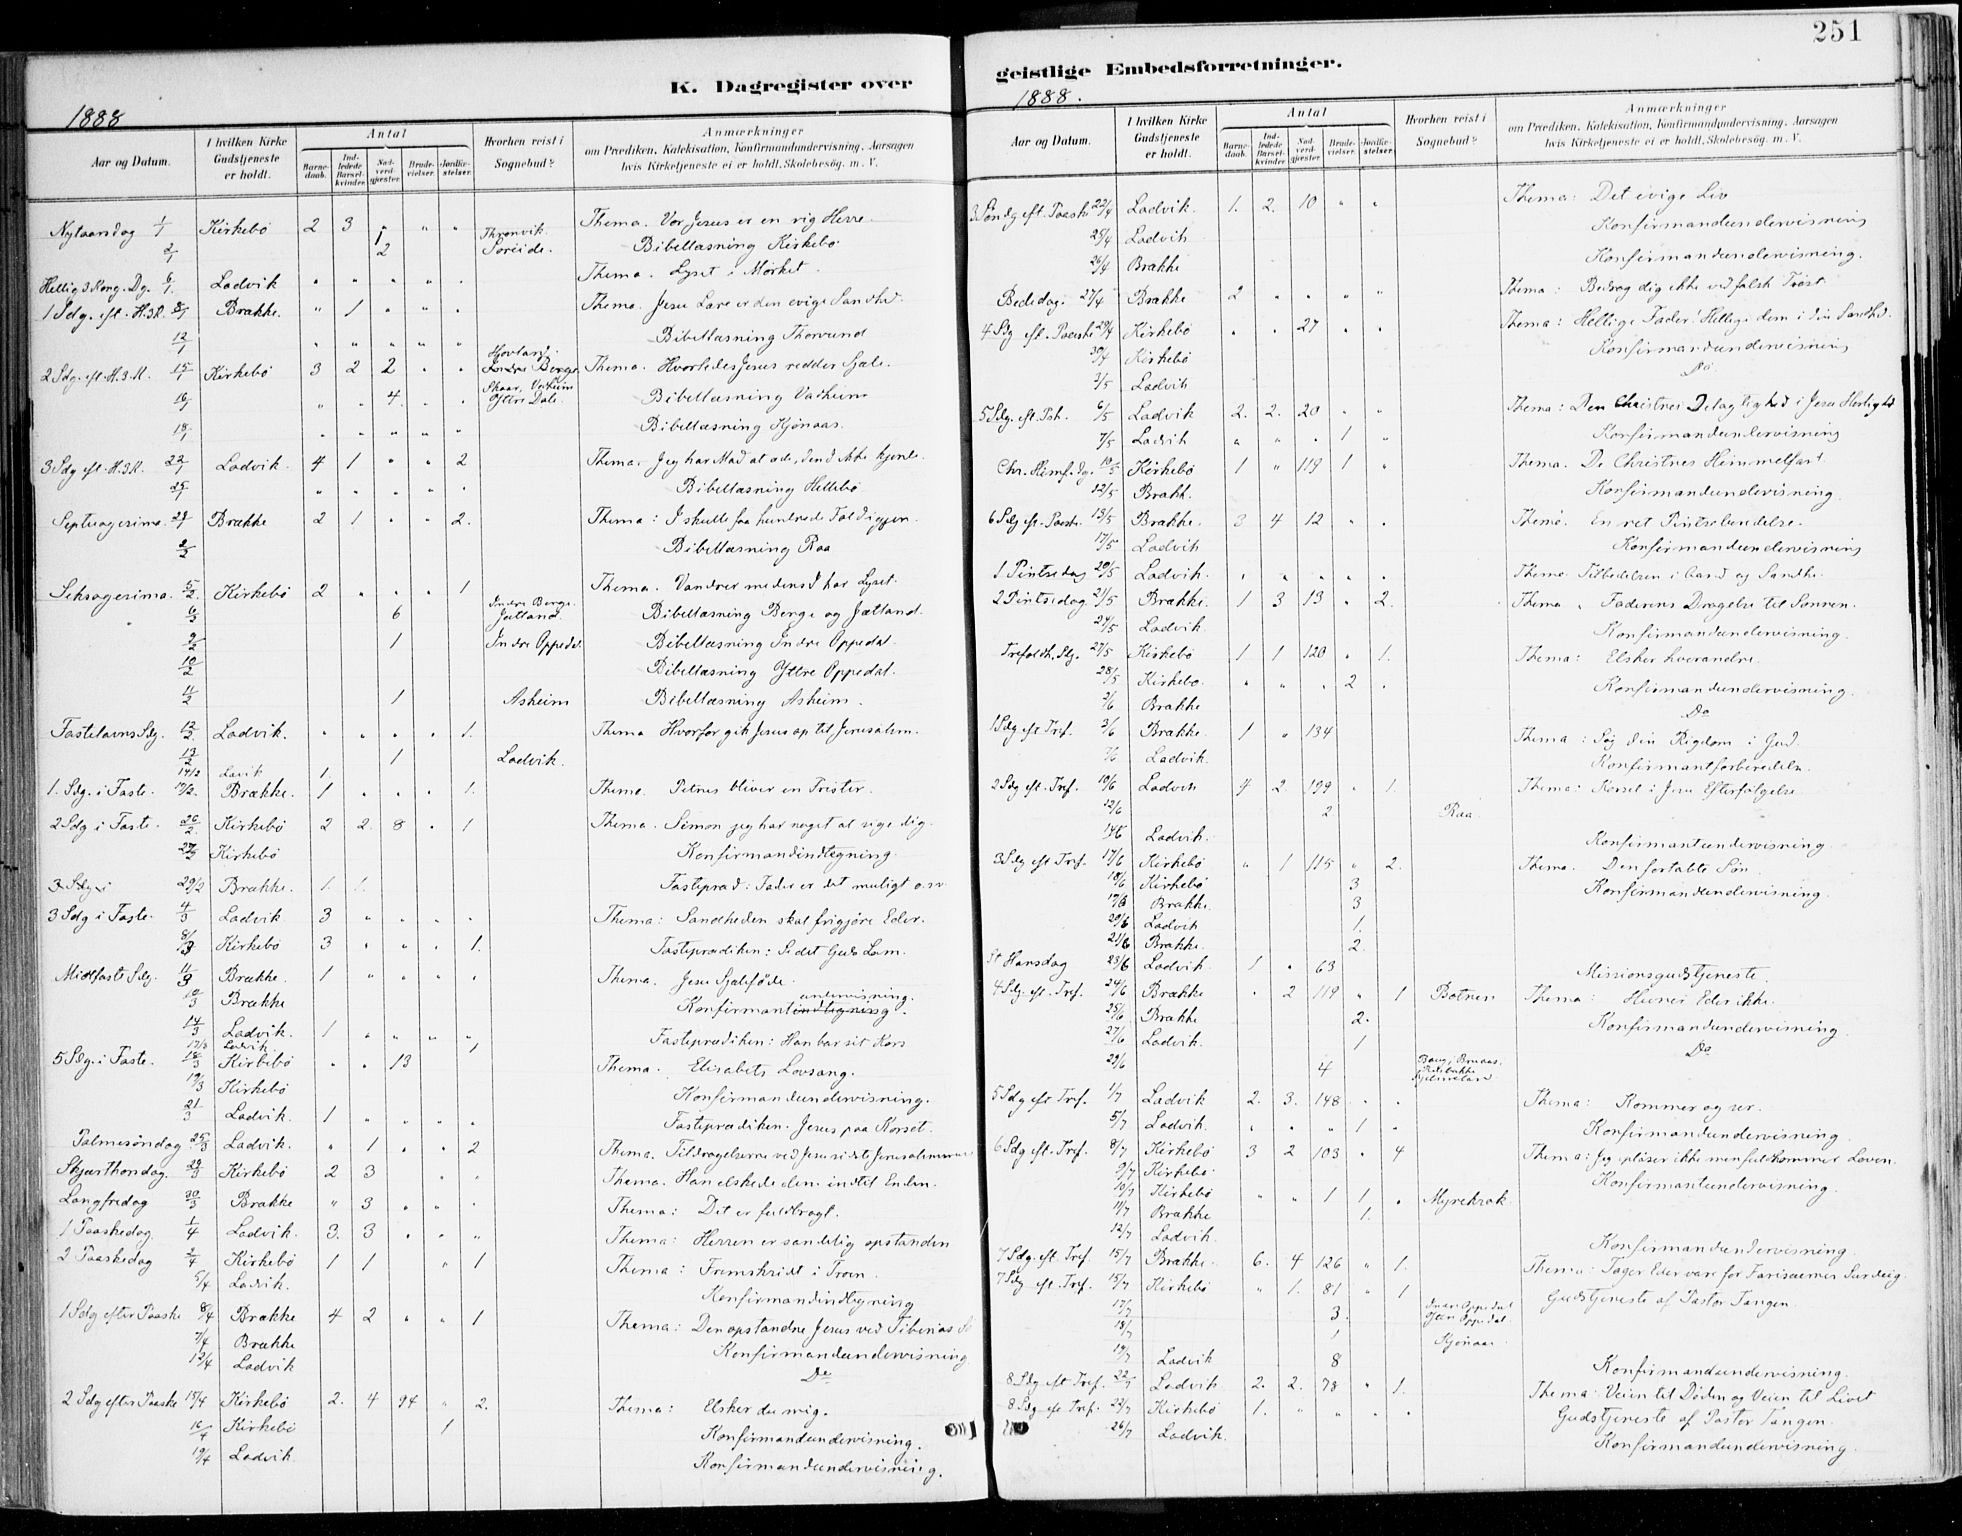 251
K. Dagregister over
1888
Aar og Datum. I hvilken Kirke Gudstjeneste er holdt. Antal Barnedaab. Indledede Barselkvinder. Nadverdgjæster. Brudevielser. Jordfæstelser. Hvorhen reist i Sognebud? Anmærkninger om Prædiken, Katekisation, Konfirmandundervisning, Aarsagen hvis Kirketjeneste ei er holdt, Skolebesög, m. V.
Nytaarsdag 1/1 Kirkebö 2 3 " " " Thema. Vor Jesus er en rig Herre.
2/1 2 Söreide. Bibellæsning Kirkebö
Hellig 3 Kong. Dg. 6/1 Ladvik " " " " " Thema. Lyset i Mörket.
1 Sdg. eft. H.3K. 8/1 Brække. " 1 " " " Thema. Jesu Lære er den evige Sandhed.
12/1 " " " " " Bibellæsning Thorvund
2 Sdg. eft. H.3K. 15/1 Kirkebö 3 2 2 " " Hovland. Indre Berge Thema. Hvorledes Jesus redder Sjæle.
16/1 " " 4. " " Skaar, Vadheim Yttre Dale. Bibellæsning Vadheim
18/1 " " " " " Bibellæsning Kjönaas.
3 Sdg eft. H.3K. 22/1 Ladvik. 4 1 " " 2 Thema. Jeg har Mad at æde, den I ikke kjende.
25/1 " " " " " Bibellæsning Hellebö
Septuagesima. 29/1 Brække 2 1 " " 2. Thema: I skulle faa hundrede Fold igjen.
2/2 Bibellæsning Raa
Seksagesima. 5/2 Kirkebö 2 " " " 1 Thema. Vandrer medens I har Lyset.
6 Indre Berge. Jatland. Bibellæsning Berge og Jatland.
9/2 1 Indre Oppedal. Bibellæsning Indre Oppedal.
10/2 Bibellæsning Yttre Oppedal.
11/2 1 Asheim Bibellæsning Asheim.
Fastelavns Sdg. 12/2 Ladvik. " " " " 1. Thema Hvorfor gik Jesus op til Jerusalem.
13/2 1 Ladvik.
14/2 Lavik 1
1. Sdg. i Faste. Brække. 1 " " " 1. Thema. Petrus bliver en Frister.
2 Sdg i Faste. 26/2 Kirkebö 2 2 8 " 1 Thema. Simon jeg har noget at sige dig.
Kirkebö Konfirmandindtegning.
3 Sdg i 29/2 Brække. 1. 1. Fasteprad: Fader er det muligt o.s.v.
3 Sdg i Faste. 4/3 Ladvik 3 " " " " Thema: Sandheden skal frigjöre Eder.
8/3 Kirkebö 3 " " " 1. Fasteprædiken: Se det Guds Lam.
Midfaste Sdg. 11/3 Brække. 1 " " " " Thema. Jesu Sjæleföde.
Brække Konfirmantindtegning undervisning.
14/3 Ladvik. 1 " " " " Fasteprædiken: Han bar sit Kors
17/3 Ladvik. 1
5 Sdg. i Faste. 18/3 Kirkebö " " 13 Thema. Elisabets Lovsang.
19/3 Kirkebö Konfirmandundervisning.
21/3 Ladvik. 1 " " " " Fasteprædiken. Jesus paa Korset.
Palmesöndag 25/3 Ladvik. " 1 " " 2 Thema. Tildragelserne ved Jesu sidste Jerusalemsreise
Skjærthorsdag. 29/3 Kirkebö 2 3 " " Thema. Han elskede dem indtil Enden.
Langfredag 30/3 Brække " 3 " " " Thema: Det er fuldbragt.
1 Paaskedag 1/4 Ladvik. 3. 3 " " " Thema: Herren er sandelig opstanden
2 Paaskedag 2/4 Kirkebö 1 1 " 1 Thema: Fremskridt i Troen.
5/4 Ladvik. Konfirmandindtegning
1 Sdg efter Paaske 8/4 Brække 4 2 " " 1 Thema: Den opstandne Jesus ved Tiberias Sö
Brække Konfirmandundervisning
12/4 Ladvik Do
2 Sdg efter Paaske 15/4 Kirkebö 2. 4 94 " 2. Thema: Elsker du mig.
16/4 Kirkebö 1 Konfirmandundervisning.
19/4 Ladvik. Konfirmandundervisning.
geistlige Embedsforretninger.
1888.
Aar og Datum. I hvilken Kirke Gudstjeneste er holdt. Antal Barnedaab. Indledede Barselkvinder. Nadverdgjæster. Brudevielser. Jordfæstelser. Hvorhen reist i Sognebud? Anmærkninger om Prædiken, Katekisation, Konfirmandundervisning, Aarsagen hvis Kirketjeneste ei er holdt, Skolebesög, m. V.
3 Söndg eft. Paaske 22/4 Ladvik. 1. 2. 10 " " Thema: Det evige Liv
25/4 Ladvik Konfirmandundervisning
26/4 Brække Konfirmandundervisning.
Bededag. 27/4 Brække 2 " " " " Thema: Bedrag dig ikke ved falsk Tröst.
4 Sdg eft. Paaske 29/4 Kirkebö " " 27 " " Thema: Hellige Fader! Hellige dem i din Sandhed.
30/4 Kirkebö Konfirmandundervisning
3/5 Ladvik Do
5 Sdg. eft. Psk. 6/5 Ladvik 2. 2. 20 " " Thema: Den Christnes Delagtighed i Jesu Herlighed
7/5 Ladvik " " " 1 " Konfirmandundervisning
Chr. Himf. Dg. 10/5 Kirkebö 1 " 119 1 " Thema. De Christnes Himmelfart
12/5 Brækk. Konfirmandundervisning.
6 Sdg eft. Paaske 13/5 Brække. 3 4 12 " " Thema. En ret Pintsebendelse.
17/5 Ladvik Konfirmandundervisning
1 Pintsedag 20/5 Ladvik. " " " " " Thema. Tilbedelsen i Aand og Sandhed.
2 Pintsedag 21/5 Brække. 1 3 13 " 2. Thema " Faderens Dragelse til Sönnen.
24/5 Ladvik. Konfirmandundervisning.
Trefoldh. Sdg. 27/5 Kirkebö 1 1 120 " 1. Thema: Elsker hverandre.
28/5 Kirkebö. " " " 2 " Konfirmandundervisning.
2/6 Brække Do
1 Sdg eft Tref. 3/6 Brække. 1 " 134 Thema: Søg din Rigdom i Gud.
7/6 Ladvik. Konfirmantforberedelse.
2 Sdg eft. Tref. 10/6 Ladvik 4 2 199 " 1. Thema: Korset i Jesu Efterfölgelse
12/6 2 Raa
14/6 Ladvik. Konfirmantundervisning.
3 Sdg eft Tref. 17/6 Kirkebö " 1 115 " 2. Thema. Den fortabte Sön.
18/6 Kirkebö 3 Konfirmandundervisning.
Brække. 3
20/6 Ladvik 1.
21/6 Brække. 2.
St Hansdag 23/6 Ladvik. 1 " 63 Missionsgudstjeneste.
4 Sdg. eft. Tref. 24/6 Brække " 2 119 " 1 Botnen Thema: Thema: Ikke.
25/6 Brække 2. Konfirmandundervisning.
27/6 Ladvik. 1 Do
29/6 4
5 Sdg eft Tref. 1/7 Ladvik 2. 3. 148 " " Thema: Kommer og ser.
5/7 Ladvik. " " " 1 " Konfirmandundervisning.
6 Sdg eft. Tref. 8/7 Kirkebö 3 2 103 " 4 Thema: Jeg oplöser ikke men fuldkommer Loven.
9/7 Kirkebö. Konfirmantundervisning.
10/7 Kirkebö " " 1 1 " Myrekrok.
11/7 Brække 1.
12/7 Ladvik. Konfirmandundervisning.
7 Sdg. eft. Tref. 15/7 Brække. 6. 4 126 " 1. Thema: Tager Eder vare for Farisæernes Surdeig.
7 Sdg eft. Tref. 15/7 Kirkebö " 1. 81 " 1 Gudstjeneste af Pastor Tangen.
17/7 3. Indre Oppedal Yttre Oppedal.
18/7 1 Kjönaas
19/7 Ladvik 8 Konfirmandundervisning.
8 Sdg eft Tref. 22/7 Ladvik. 2. 2. 78 " 1. Thema: Veien til Döden og Veien til Livet
8 Sdg. eft Tref. Kirkebö 1. " " " " Gudstjeneste af Pastor Tangen.
26/7 Ladvik. Konfirmandundervisning.